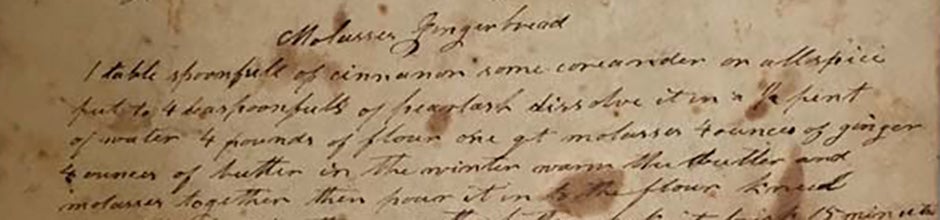 Molasses Gingerbread
1 table spoonfull of cinnanon some coreander or allspice
put to 4 teaspoonfulls of pearlash dissolve it in a ½ pent
of water 4 pounds of flour one qt molasses 4 ounces of ginger
4 ounces of butter in the winter warm the butter and
molasses together then pour it in to the flour knead
15 minuts